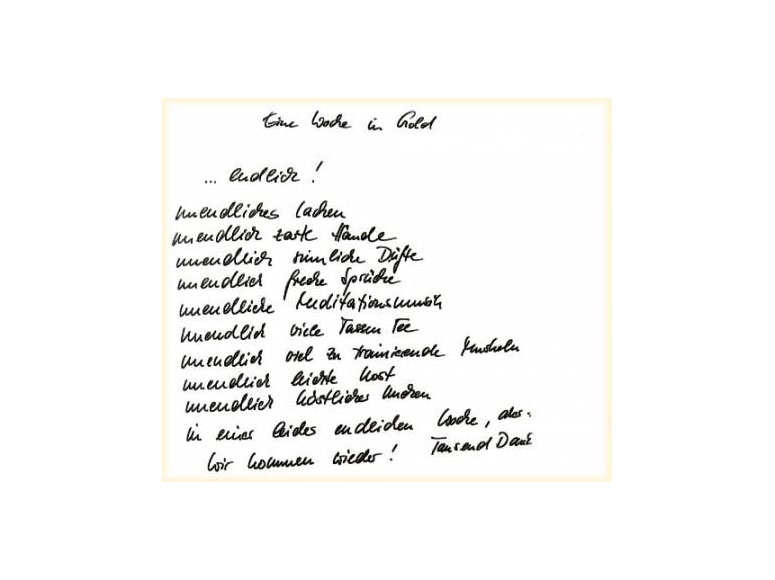 Eine Woche in Gold
... endlich!
unendliches Lachen
unendlich zarte Hände
unendlich sinnliche Düfte
unendlich freche Sprüche
unendliche Meditationsmusik
unendlich viele Tassen Tee
unendlich viel zu trainierende Muskeln
unendlich leichte Kost
unendlich köstliches
in einer leider endlichen Woche, aber:
Wir kommen wieder! Tausend Dank